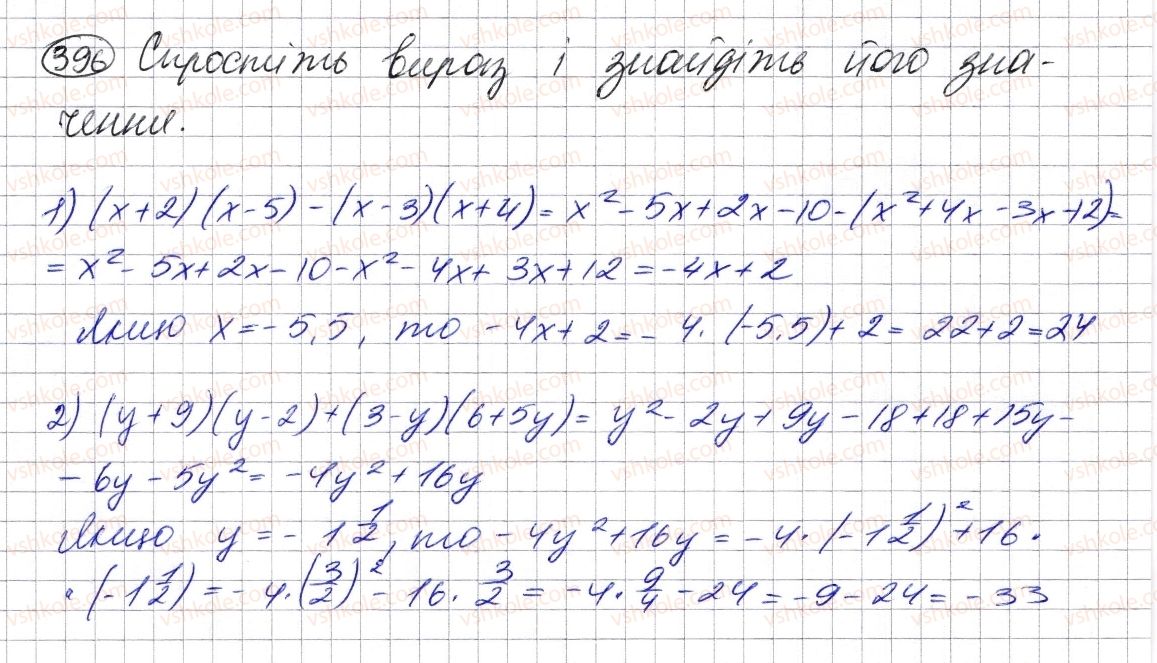 396 Спростіть вираз і знайдіть його зна-
чення.
1) (x+2)(x-5)-(x-3)(x+4)=x²-5x+2x-10-(x²+4x-3x-12)=
=x²-5x+2x-10-x²-4x+3x+12=-4x+2
Якщо x=-5,5, то -4x+2=-4·(-5,5)+2=22+2=24
2) (y+9)(y-2)+(3-y)(6+5y)=y²-2y+9y-18+18+15y-
-6y-5y²=-4y²+16y
Якщо y=-1 1/2, то -4y²+16y=-4·(-1 1/2)²+16·
·(-1 1/2)=-4·(3/2)²-16·3/2=-4·9/4-24=-9-24=-33